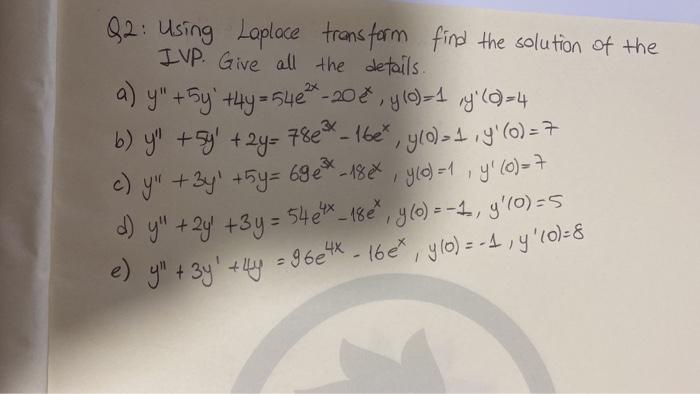 Q2: Using Laplace transform find the solution of the
IVP. Give all the details.
a) y'' + 5y' + 4y = 54e^{2x} - 20e^x, y(0)=1, y'(0)=4
b) y'' + 5y' + 2y = 78e^{3x} - 16e^x, y(0)=1, y'(0)=7
c) y'' + 3y' + 5y = 69e^{3x} - 18e^x, y(0)=1, y'(0)=7
d) y'' + 2y' + 3y = 54e^{4x} - 18e^x, y(0)=-1, y'(0)=5
e) y'' + 3y' + 4y = 96e^{4x} - 16e^x, y(0)=-1, y'(0)=8